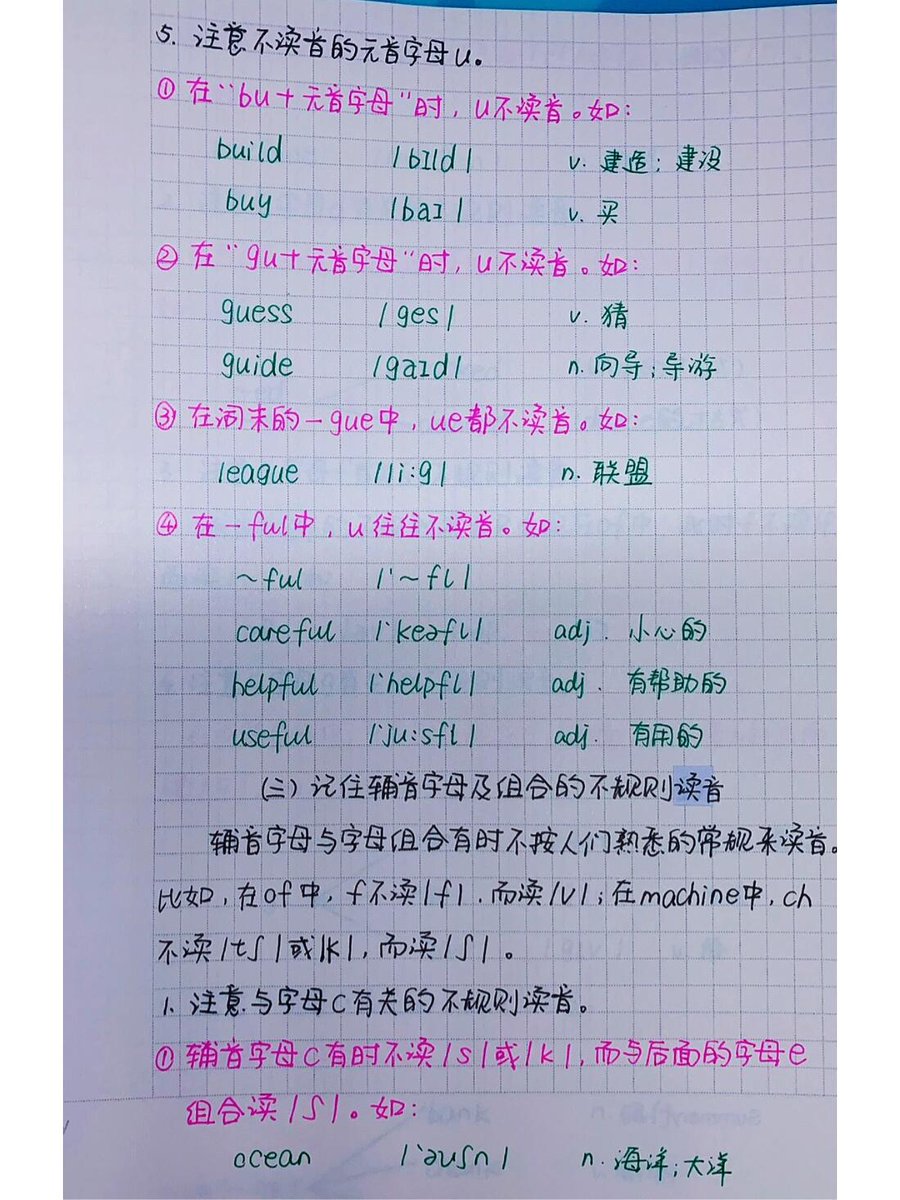 5. 注意不读音的元音字母u。
① 在“bu+元音字母”时，u不读音。如：
build /bɪld/ v. 建造；建设
buy /baɪ/ v. 买
② 在“gu+元音字母”时，u不读音。如：
guess /ges/ v. 猜
guide /gaɪd/ n. 向导；导游
③ 在词末的-gue中，ue都不读音。如：
league /li:g/ n. 联盟
④ 在-ful中，u往往不读音。如：
~ful /'~fl/
careful /'keəfl/ adj. 小心的
helpful /'helpfl/ adj. 有帮助的
useful /'ju:sfl/ adj. 有用的
(三) 记住辅音字母及组合的不规则读音
辅音字母与字母组合有时不按人们熟悉的常规来读音。
比如，在of中，f不读/f/，而读/v/；在machine中，ch
不读/tʃ/或/k/，而读/ʃ/。
1. 注意与字母c有关的不规则读音。
① 辅音字母c有时不读/s/或/k/，而与后面的字母e
组合读/ʃ/。如：
ocean /'əuʃn/ n. 海洋；大洋